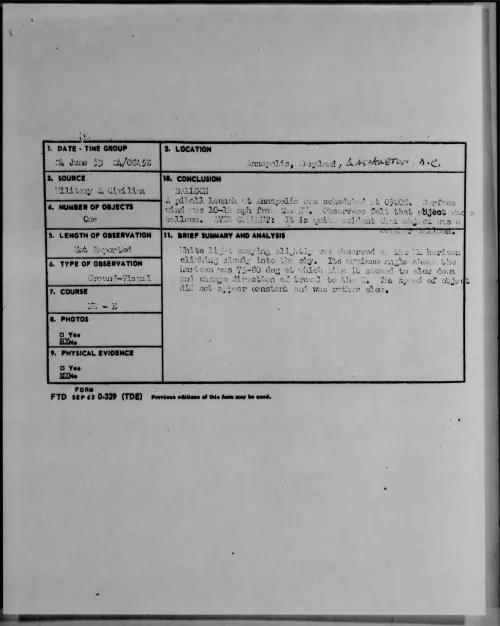 1. DATE - TIME GROUP
24 June 53 24/0845Z
2. LOCATION
Annapolis, Maryland, WASHINGTON, D.C.
3. SOURCE
Military & Civilian
10. CONCLUSION
BALLOON
A piball launch at Annapolis was scheduled at 0900Z. Surface
wind was 10-12 mph from the Observers felt that object was a
balloon. COMMENT: It is quite evident that object was a
balloon.
4. NUMBER OF OBJECTS
One
5. LENGTH OF OBSERVATION
Not Reported
11. BRIEF SUMMARY AND ANALYSIS
White light swaying slightly was observed on the horizon
climbing slowly into the sky. Its maximum angle above the
horizon was 75-80 deg at which time it seemed to slow down
and change direction of travel to the E. The speed of object
did not appear constant and was rather slow.
6. TYPE OF OBSERVATION
Ground-Visual
7. COURSE
- E
8. PHOTOS
□ Yes
No
9. PHYSICAL EVIDENCE
□ Yes
No
FORM
FTD SEP 63 0-329 (TDE) Previous editions of this form may be used.